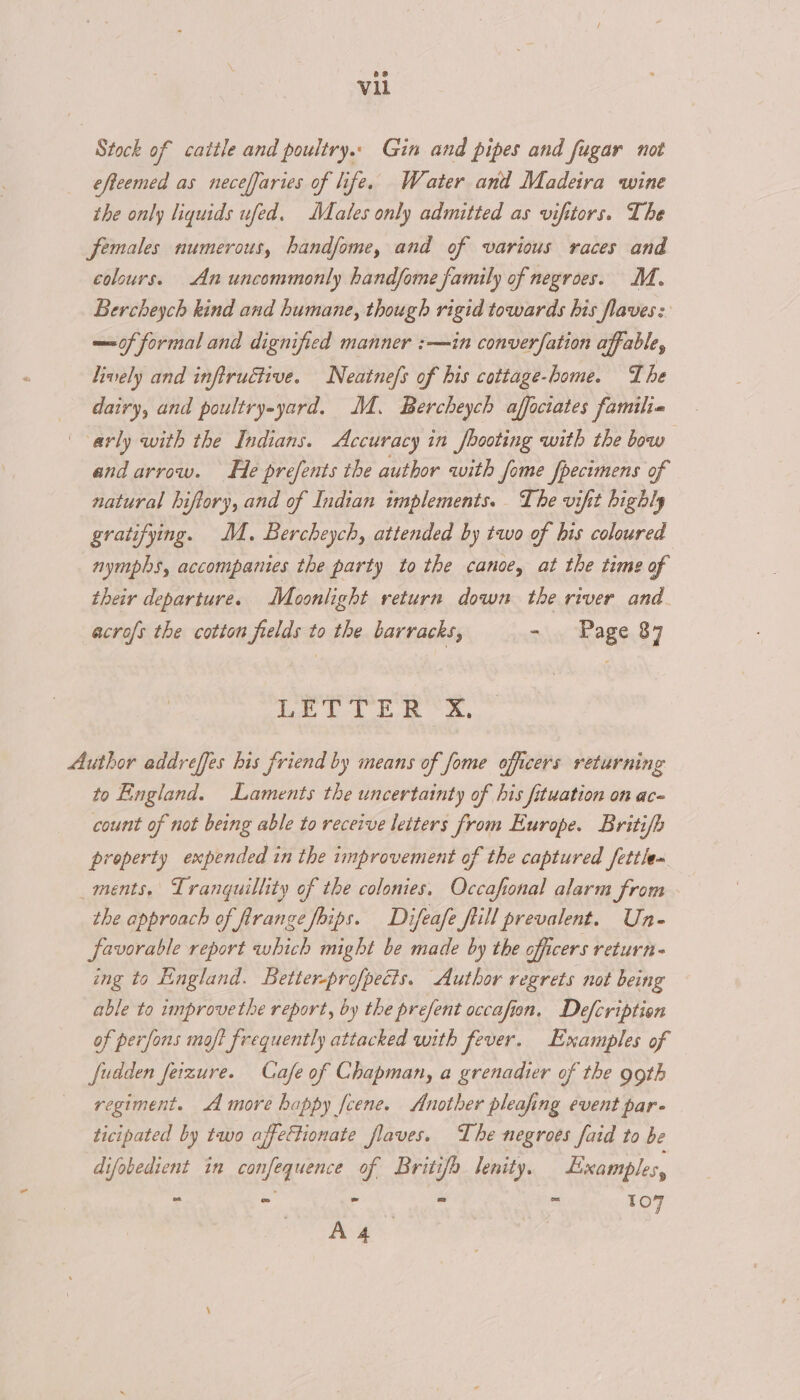 vii
Stock of cattle and poultry. Gin and pipes and ſugar not
eſteemed as neceſſaries of life. Water and Madeira wine
the only liquids uſed. Males only admitted as viſitors. The
females numerous, handſome, and of various races and
colours. An uncommonly handſome family of negroes. M.
Bercheych kind and humane, though rigid towards his ſlaves:
—of formal and dignified manner :—in converſation affable,
lively and inſtructive. Neatneſs of his cottage-home. The
dairy, and poultry-yard. M. Bercheych aſſociates famili-
arly with the Indians. Accuracy in ſhooting with the bow
and arrow. He preſents the author with ſome ſpecimens of
natural hiſtory, and of Indian implements. The viſit highly
gratifying. M. Bercheych, attended by two of his coloured
nymphs, accompanies the party to the canoe, at the time of
their departure. Moonlight return down the river and
acroſs the cotton fields to the barracks, - Page 87
LETTER X.
Author addreſſes his friend by means of ſome officers returning
to England. Laments the uncertainty of his ſituation on ac-
count of not being able to receive letters from Europe. Britiſh
property expended in the improvement of the captured ſettle-
ments. Tranquillity of the colonies. Occaſional alarm from
the approach of ſtrange ſhips. Diſeaſe ſtill prevalent. Un-
favorable report which might be made by the officers return-
ing to England. Better proſpects. Author regrets not being
able to improve the report, by the preſent occaſion. Deſcription
of perſons moſt frequently attacked with fever. Examples of
ſudden ſeizure. Caſe of Chapman, a grenadier of the 99th
regiment. A more happy ſcene. Another pleaſing event par-
ticipated by two affectionate ſlaves. The negroes ſaid to be
diſobedient in conſequence of Britiſh lenity. Examples,
- - - - - 107
A 4